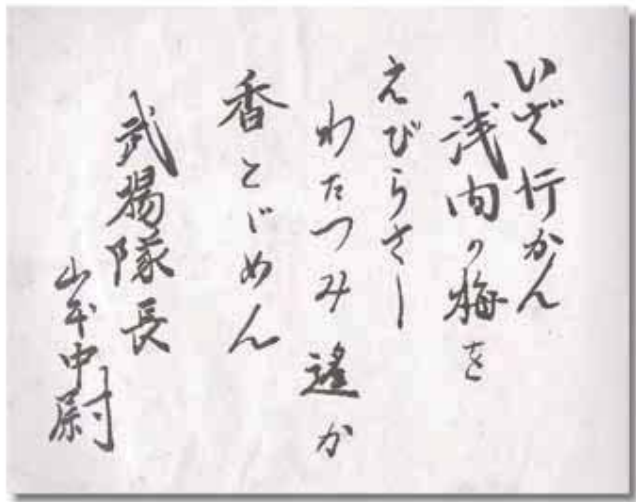 いざ行かん
浅内の梅を
えびらさし
わたつみ遥か
香とどめん
武揚隊長
中尉